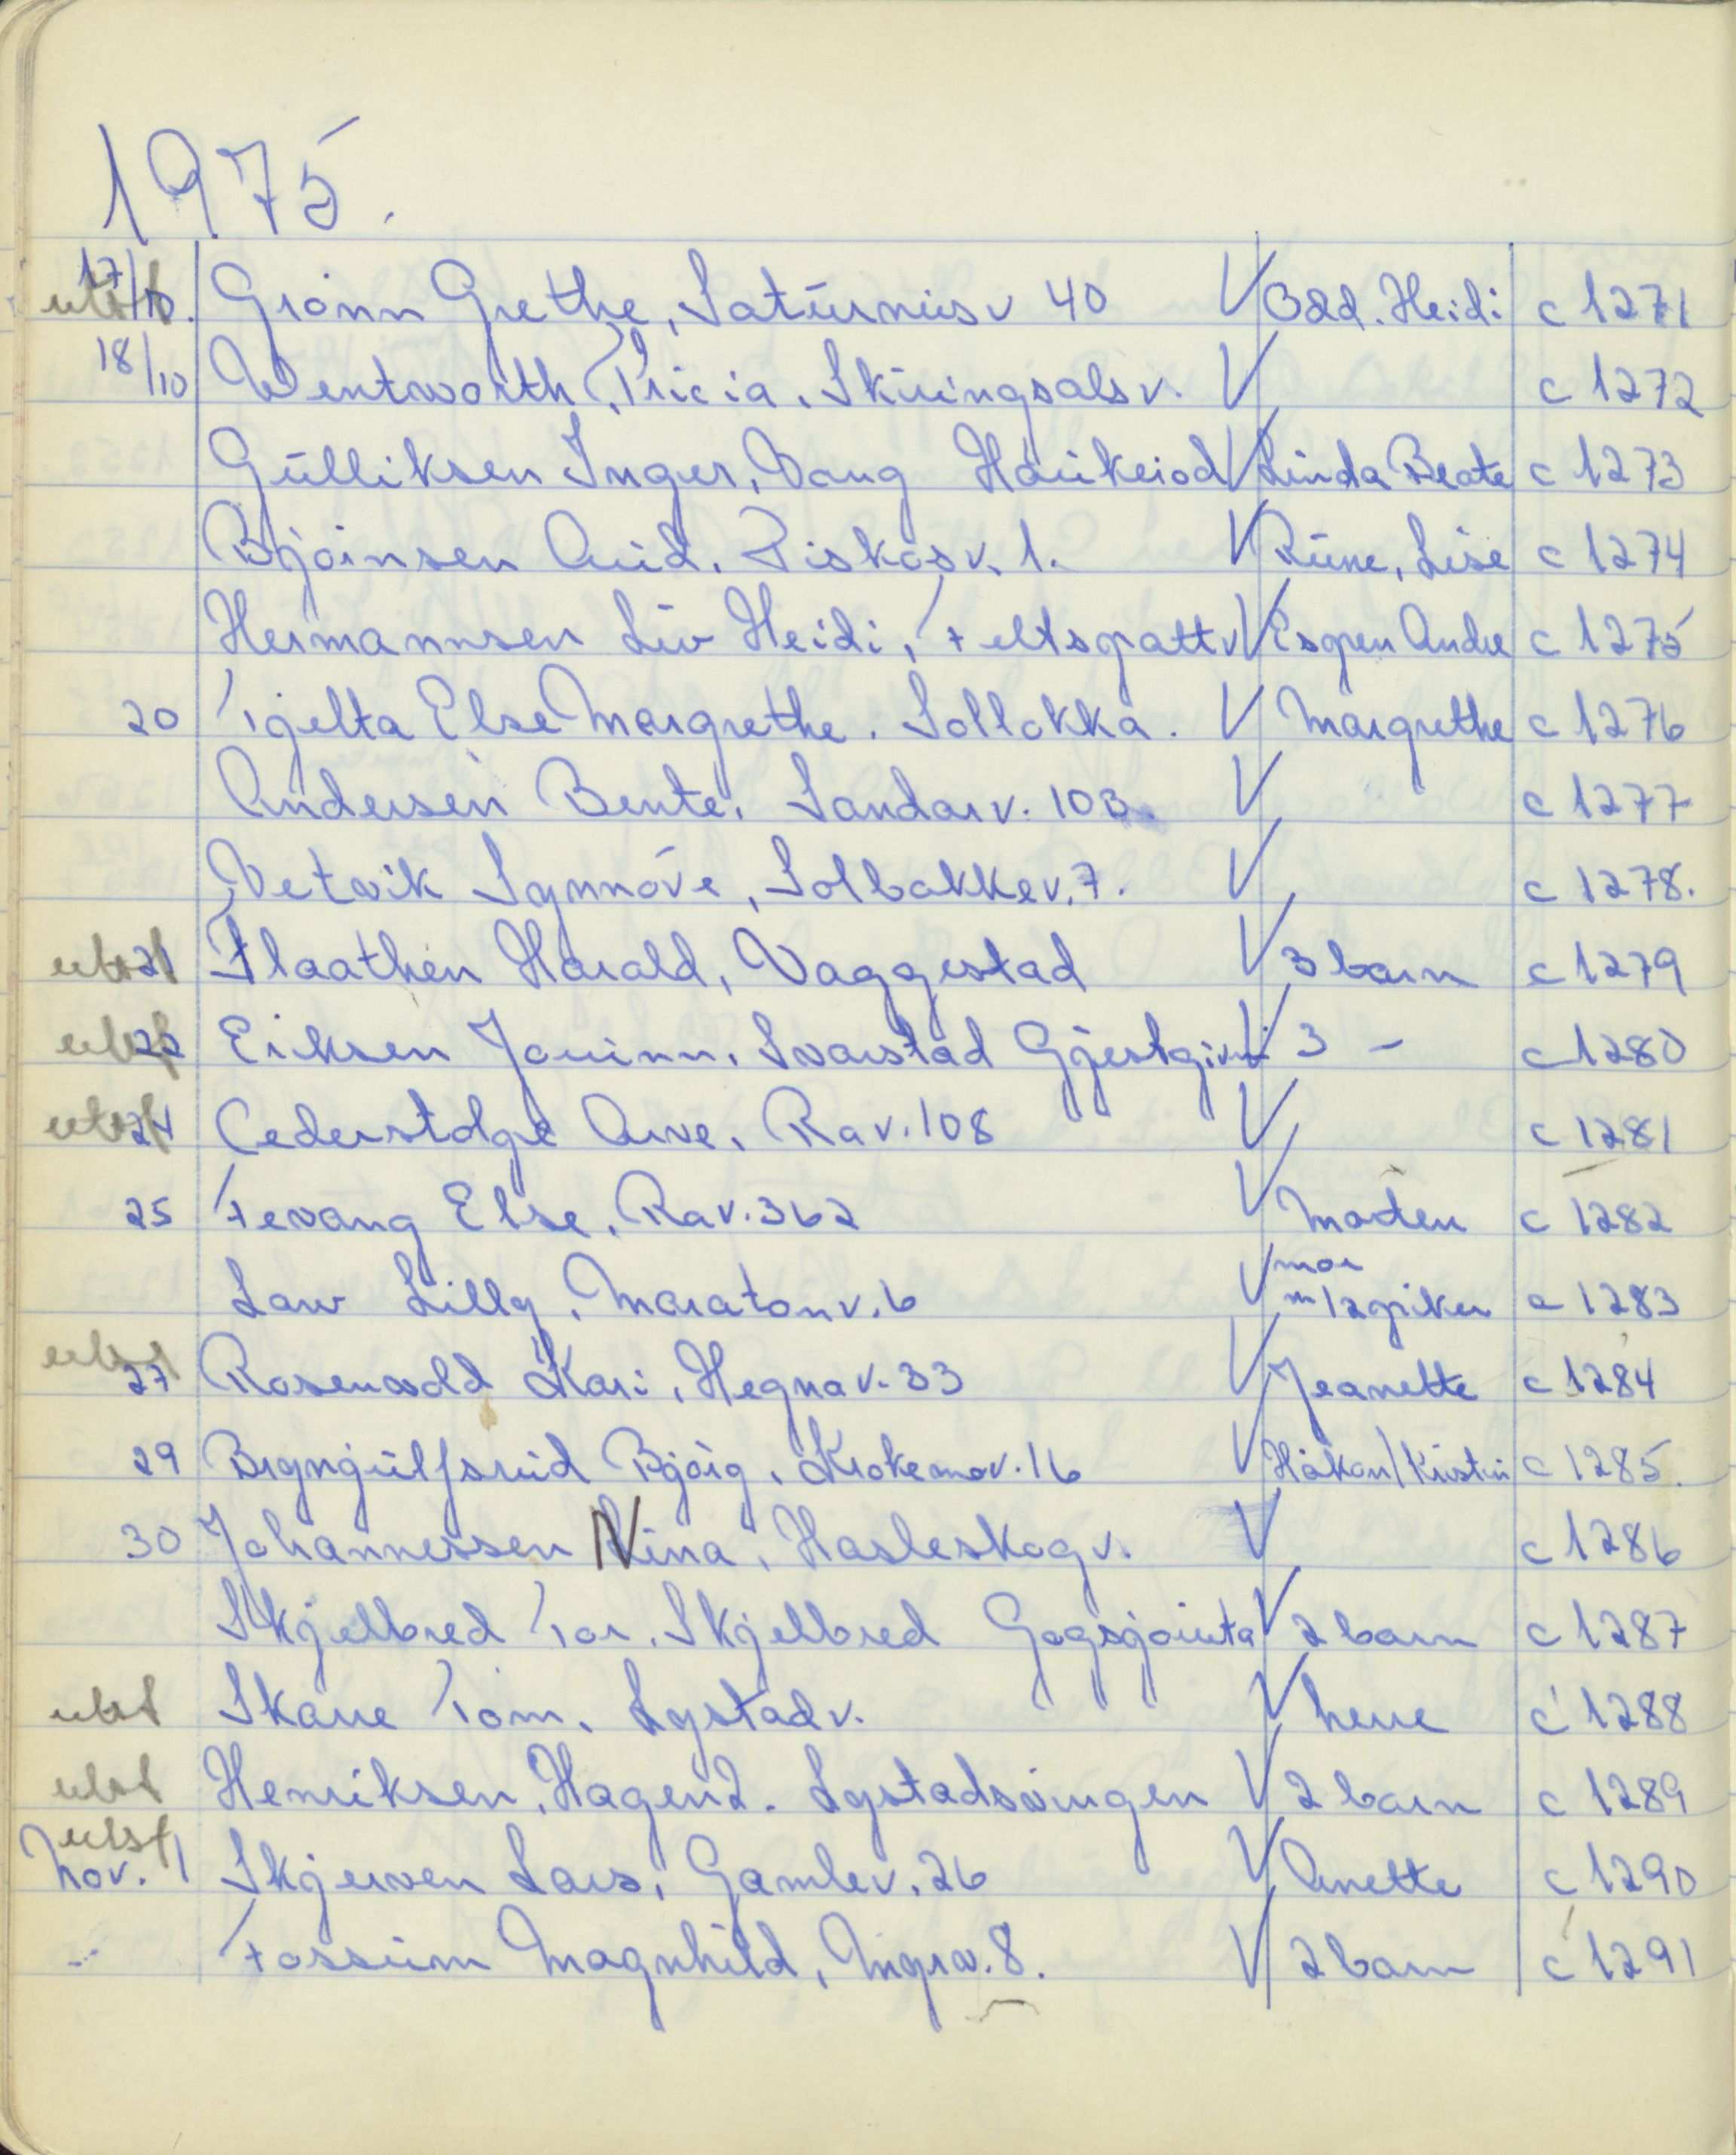 1975.
17/10. Grönn Grethe, Saturnusv 40 V Odd. Heidi c 1271
18/10 Wentworth, Pricia, Skiringsalsv. V c 1272
Gulliksen Inger, Vang Haukeröd V Linda Beate c 1273
Björnsen Aud. Piskåsv. 1. V Rune, Lise c 1274
Hermannsen Liv Heidi, Feltspattv V Espen Andre c 1275
20 Tjelta Else Margrethe. Solløkka. V Margrethe c 1276
Andersen Bente. Sandarv. 103. V c 1277
Vetvik Synnöve, Solbakkev. 7. V c 1278.
utest 21 Flaathen Harald, Vaggestad V 3 barn c 1279
utest 22 Eriksen Jorunn. Svarstad Gjestgiveri V 3 - c 1280
utest 24 Cederstolpe Arve, Rav. 108 V c 1281
25 Fevang Else, Rav. 362 V moden c 1282
Law Lilly, Maratonv. 6 V mor m/2 piker c 1283
27 Rosenvold Kari, Hegnav. 33 V Jeanette c 1284
29 Bryngulfsrud Björg, Krokemov. 16 V Håkon/Kristin c 1285.
30 Johannessen Nina, Hasleskogv. V c 1286
Skjelbred Tor. Skjelbred V 2 barn c 1287
utest Skaue Tom. Lystadv. V herre c 1288
utest Henriksen, Hagen 2. Lystadsvingen V 2 barn c 1289
utest
Nov. 1 Skjerven Lars, Gamlev. 26 V Anette c 1290
Fossum Magnhild, V 2 barn c 1291